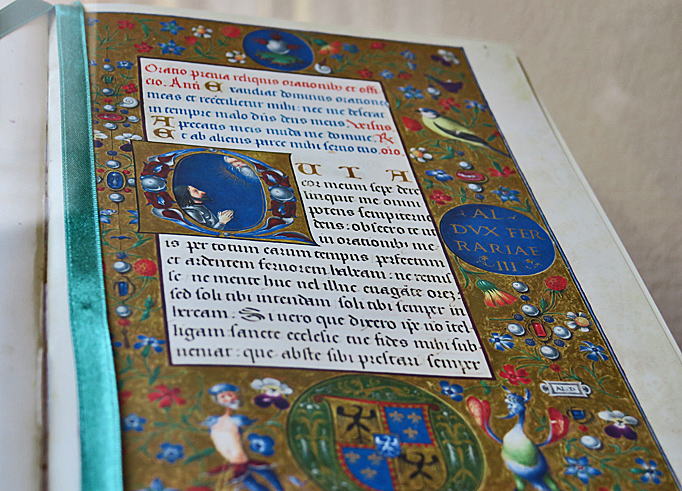 Oratio preuia reliquis orationib; et offi
cio. Añ Exaudiat dominus orationes
meas et reconcilietur mihi: nec me deserat
in tempore malo dñs deus meus Versus.
A peccatis meis munda me domine. R
Et ab alienis parce mihi seruo tuo. oio.
QUIA
cor meum sepe dere
linquit me omni
potens sempiterne
deus: obsecro te ut
in orationibus me
is per totum earum tempus perfectum
et ardentem feruorem habeam: ne remis
se ne mente huc uel illuc euagate orem:
sed soli tibi intendam soli tibi semper in
heream: Si uero que dixero ipse no itel
ligam sancte ecclesie tue fides mihi sub
ueniat: que abs te sibi prestari semper
AL
DVX FER
RARIAE
III
AL·D·